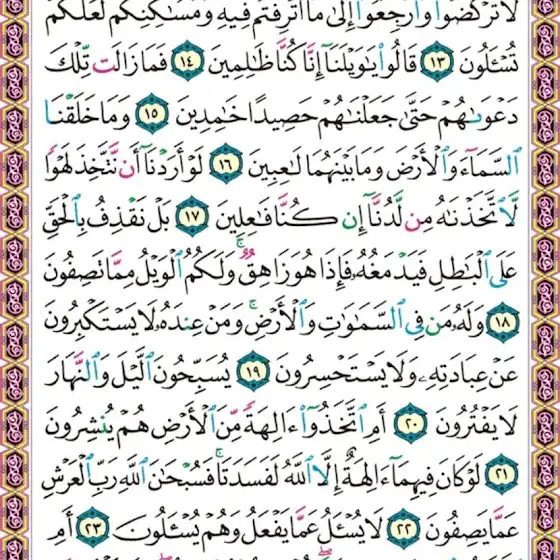 لَا تَرْكُضُوا۟ وَٱرْجِعُوٓا۟ إِلَىٰ مَآ أُتْرِفْتُمْ فِيهِ وَمَسَـٰكِنِكُمْ لَعَلَّكُمْ
تُسْـَٔلُونَ ١٣ قَالُوا۟ يَـٰوَيْلَنَآ إِنَّا كُنَّا ظَـٰلِمِينَ ١٤ فَمَا زَالَت تِّلْكَ
دَعْوَىٰهُمْ حَتَّىٰ جَعَلْنَـٰهُمْ حَصِيدًا خَـٰمِدِينَ ١٥ وَمَا خَلَقْنَا
ٱلسَّمَآءَ وَٱلْأَرْضَ وَمَا بَيْنَهُمَا لَـٰعِبِينَ ١٦ لَوْ أَرَدْنَآ أَن نَّتَّخِذَ لَهْوًا
لَّٱتَّخَذْنَـٰهُ مِن لَّدُنَّآ إِن كُنَّا فَـٰعِلِينَ ١٧ بَلْ نَقْذِفُ بِٱلْحَقِّ
عَلَى ٱلْبَـٰطِلِ فَيَدْمَغُهُۥ فَإِذَا هُوَ زَاهِقٌ ۚ وَلَكُمُ ٱلْوَيْلُ مِمَّا تَصِفُونَ
١٨ وَلَهُۥ مَن فِى ٱلسَّمَـٰوَٰتِ وَٱلْأَرْضِ ۚ وَمَنْ عِندَهُۥ لَا يَسْتَكْبِرُونَ
عَنْ عِبَادَتِهِۦ وَلَا يَسْتَحْسِرُونَ ١٩ يُسَبِّحُونَ ٱلَّيْلَ وَٱلنَّهَارَ
لَا يَفْتُرُونَ ٢٠ أَمِ ٱتَّخَذُوٓا۟ ءَالِهَةً مِّنَ ٱلْأَرْضِ هُمْ يُنشِرُونَ
٢١ لَوْ كَانَ فِيهِمَآ ءَالِهَةٌ إِلَّا ٱللَّهُ لَفَسَدَتَا ۚ فَسُبْحَـٰنَ ٱللَّهِ رَبِّ ٱلْعَرْشِ
عَمَّا يَصِفُونَ ٢٢ لَا يُسْـَٔلُ عَمَّا يَفْعَلُ وَهُمْ يُسْـَٔلُونَ ٢٣ أَمِ